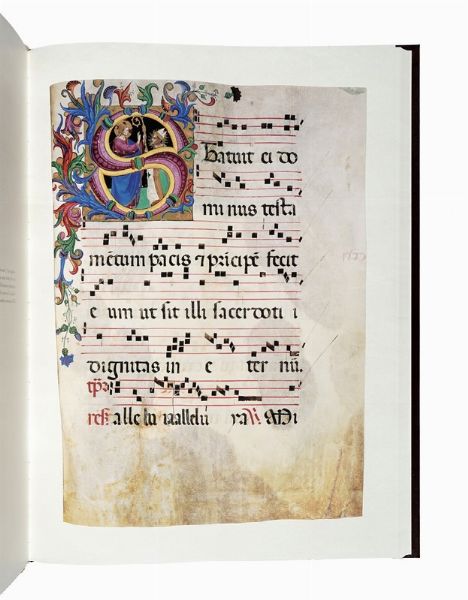 Statuit ei do
minus testa
mētum pacis ⁊ pricipē fecit
eum ut sit illi sacerdoti i
dignitas in e ter nū.
tp̄r
res alle lu ia allelu ya